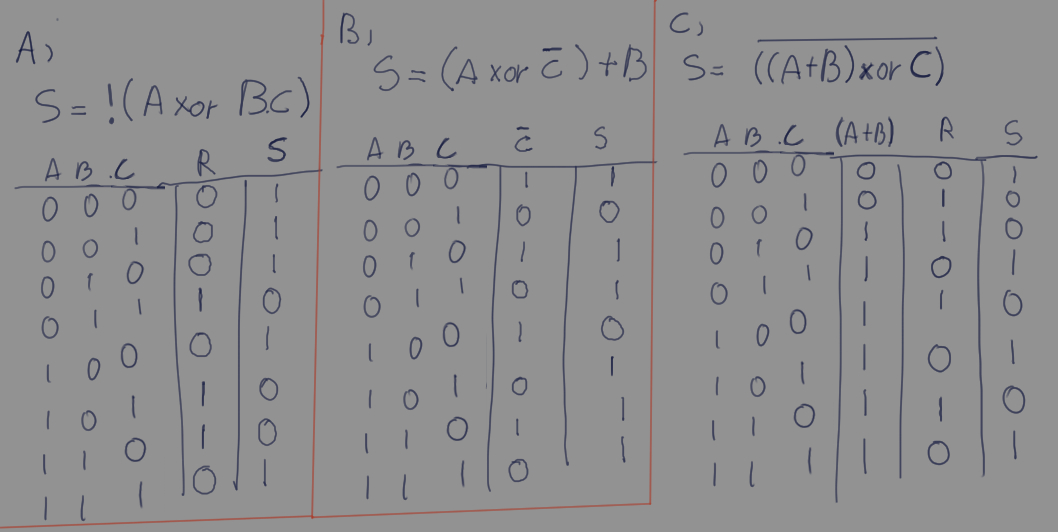 A)
S = !(A xor B.C)
A B .C R S
0 0 0 0 1
0 0 1 0 1
0 1 0 0 1
0 1 1 1 0
1 0 0 0 1
1 0 1 1 0
1 1 0 1 0
1 1 1 0 1
B)
S = (A xor C̅) + B
A B C C̅ S
0 0 0 1 1
0 0 1 0 0
0 1 0 1 1
0 1 1 0 1
1 0 0 1 0
1 0 1 0 1
1 1 0 1 1
1 1 1 0 1
C)
S = ((A+B) xor C)
A B .C (A+B) R S
0 0 0 0 0 1
0 0 1 0 1 0
0 1 0 1 1 0
0 1 1 1 0 1
1 0 0 1 1 0
1 0 1 1 0 1
1 1 0 1 1 0
1 1 1 1 0 1